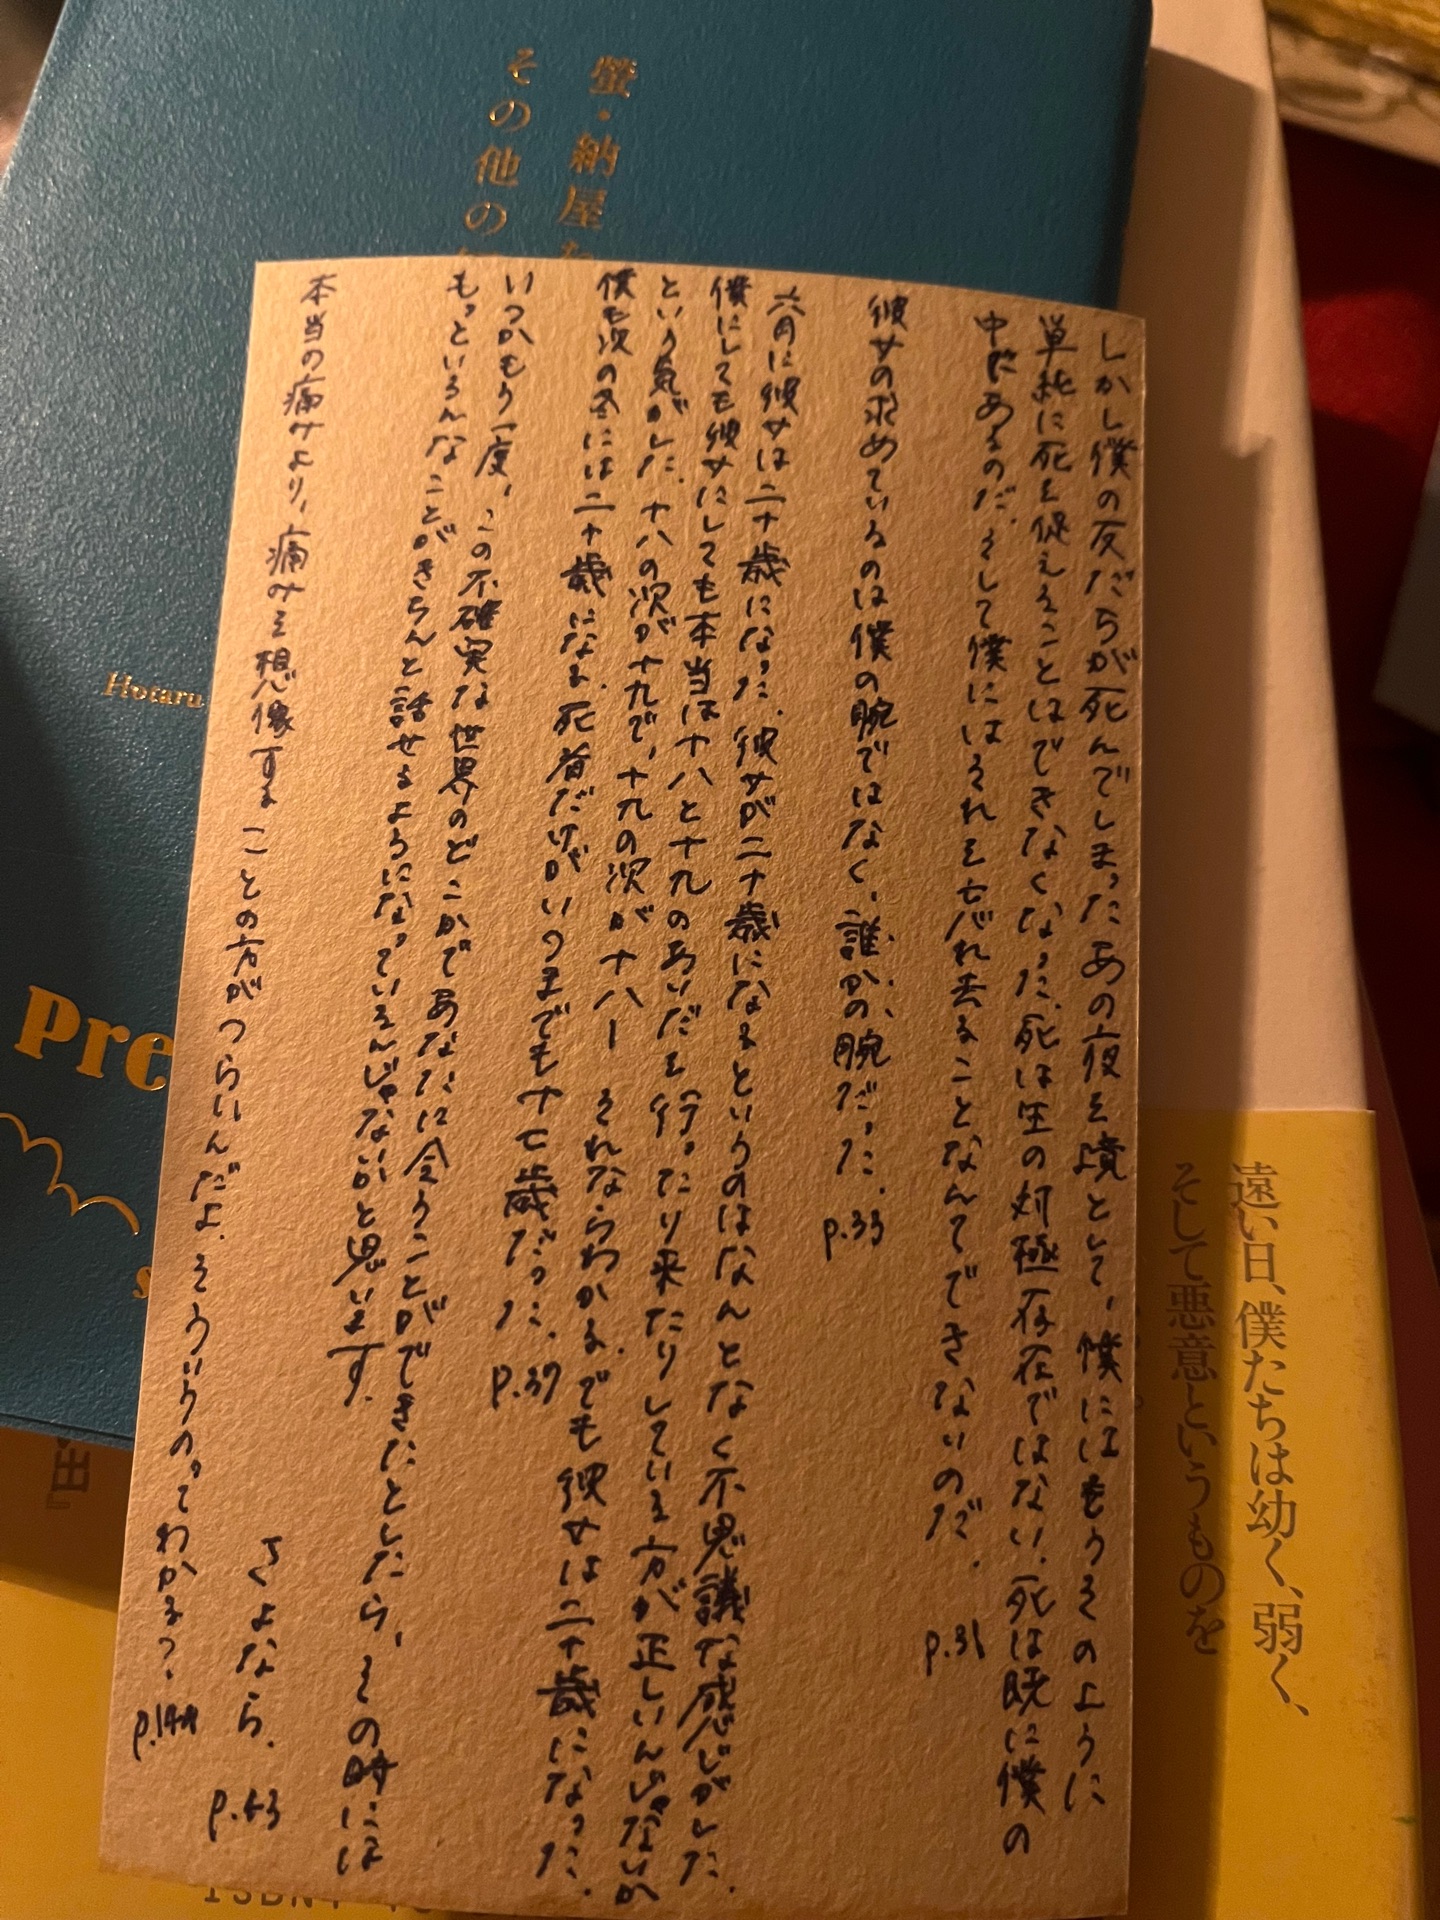 螢・納屋
その他の
Hotaru
Pre
s
しかし僕の友だちが死んでしまったあの夜を境として、僕にはもうそのように
単純に死を促えることはできなくなった。死は生の対極存在ではない。死は既に僕の
中にあるのだ。そして僕にはそれを忘れ去ることなんてできないのだ。
p.31
彼女の求めているのは僕の腕ではなく、誰かの腕だった。p.33
六月に彼女は二十歳になった。彼女が二十歳になるというのはなんとなく不思議な感じがした。
僕にしても彼女にしても本当は十八と十九のあいだを行ったり来たりしている方が正しいんじゃないか
という気がした。十八の次が十九で、十九の次が十八ー それならわかる。でも彼女は二十歳になった。
僕も次の冬には二十歳になる。死者だけがいつまでも十七歳だった。p.37
いつかもう一度、この不確実な世界のどこかであなたに会うことができたとしたら、その時には
もっといろんなことがきちんと話せるようになっているんじゃないかと思います。
さよなら。p.53
本当の痛みより、痛みを想像することの方がつらいんだよ。そういうのってわかる?。p.144
遠い日、僕たちは幼く、弱く、
そして悪意というものを
田』
ISBN4